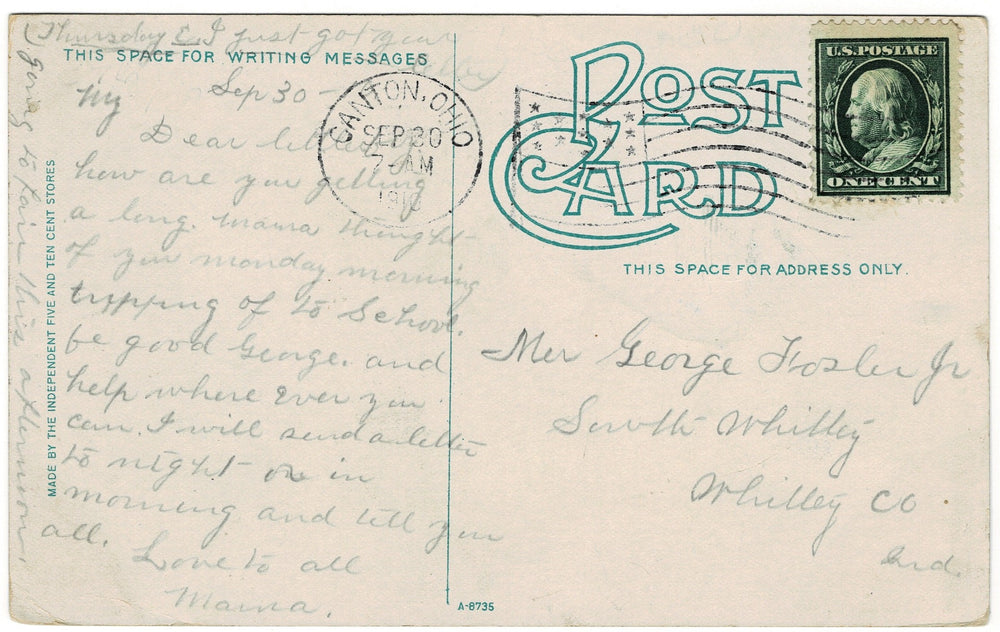 Thursday E. I just got your
THIS SPACE FOR WRITING MESSAGES
Sep 30 -
My
Dear little
how are you getting
a long. Mama thought
of you monday morning
tripping of to School.
be good George. and
help where Ever you
can. I will send a letter
to night or in
morning and tell you
all.
Love to all
Mama.
going to fair this afternoon.
MADE BY THE INDEPENDENT FIVE AND TEN CENT STORES
CANTON, OHIO
SEP 30
7-AM
POST CARD
U.S. POSTAGE
ONE CENT
THIS SPACE FOR ADDRESS ONLY.
Mer George Fosler Jr
South Whitley
Whitley CO
Ind.
A-8735